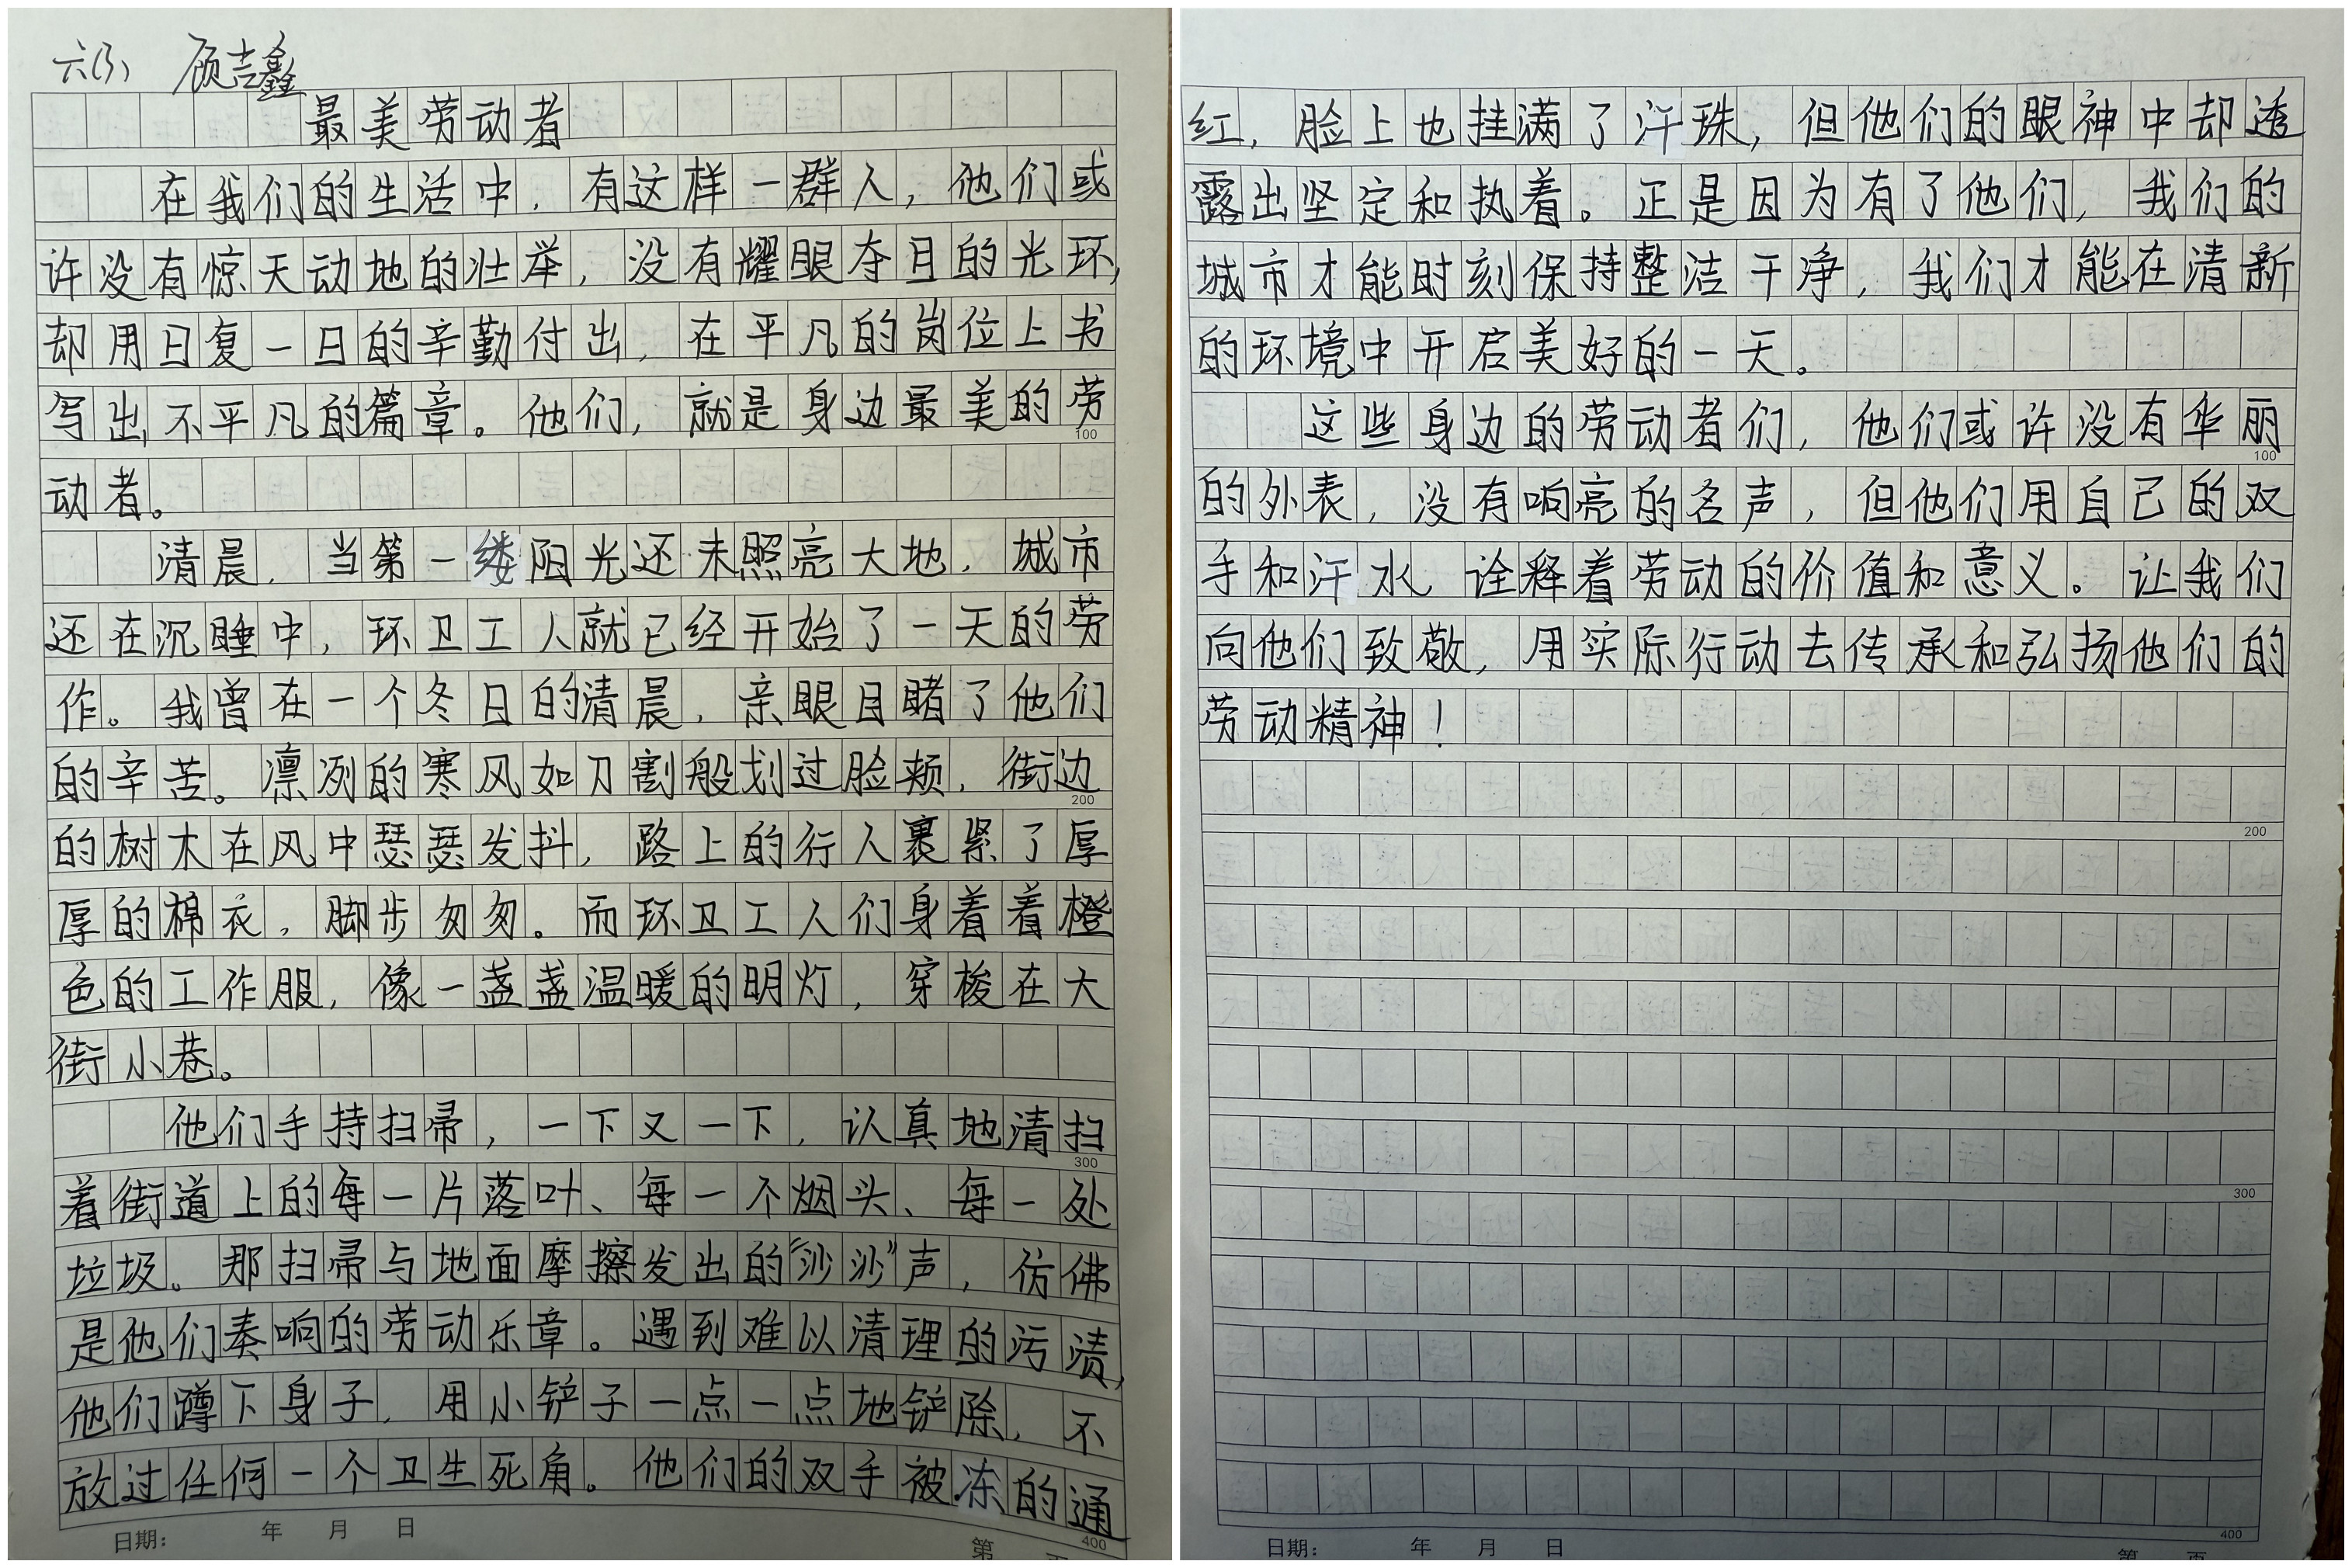 顾吉鑫
最美劳动者
在我们的生活中，有这样一群人，他们或
许没有惊天动地的壮举，没有耀眼夺目的光环，
却用日复一日的辛勤付出，在平凡的岗位上书
写出不平凡的篇章。他们，就是身边最美的劳
100
动者。
清晨，当第一缕阳光还未照亮大地，城市
还在沉睡中，环卫工人就已经开始了一天的劳
作。我曾在一个冬日的清晨，亲眼目睹了他们
的辛苦。凛冽的寒风如刀割般划过脸颊，街边
200
的树木在风中瑟瑟发抖，路上的行人裹紧了厚
厚的棉衣，脚步匆匆。而环卫工人们身着着橙
色的工作服，像一盏盏温暖的明灯，穿梭在大
街小巷。
他们手持扫帚，一下又一下，认真地清扫
300
着街道上的每一片落叶、每一个烟头、每一处
垃圾。那扫帚与地面摩擦发出的“沙沙”声，仿佛
是他们奏响的劳动乐章。遇到难以清理的污渍，
他们蹲下身子，用小铲子一点一点地铲除，不
放过任何一个卫生死角。他们的双手被冻的通
400
日期： 年 月 日
第 页
红，脸上也挂满了汗珠，但他们的眼神中却透
露出坚定和执着。正是因为有了他们，我们的
城市才能时刻保持整洁干净，我们才能在清新
的环境中开启美好的一天。
这些身边的劳动者们，他们或许没有华丽
100
的外表，没有响亮的名声，但他们用自己的双
手和汗水，诠释着劳动的价值和意义。让我们
向他们致敬，用实际行动去传承和弘扬他们的
劳动精神！
200
300
400
日期： 年 月 日
第 页